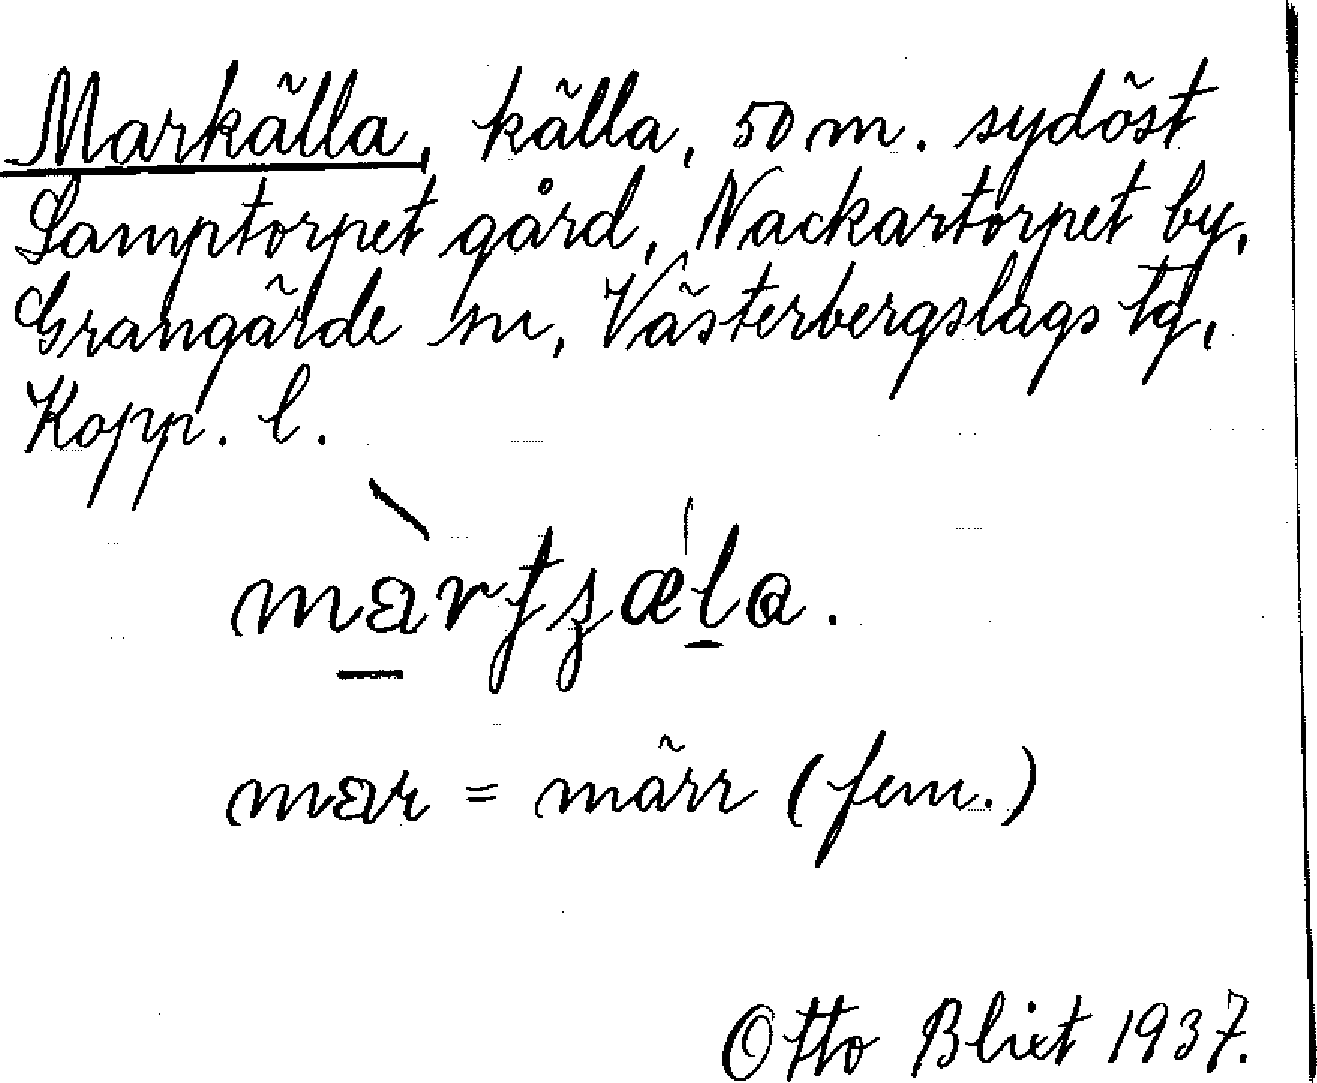 Markälla, källa, 50 m. sydöst
Lamptorpet gård, Nackartorpet by,
Grangärde sn, Västerbergslags tg,
Kopp. l.
mar = märr (fem.)
Otto Blixt 1937.